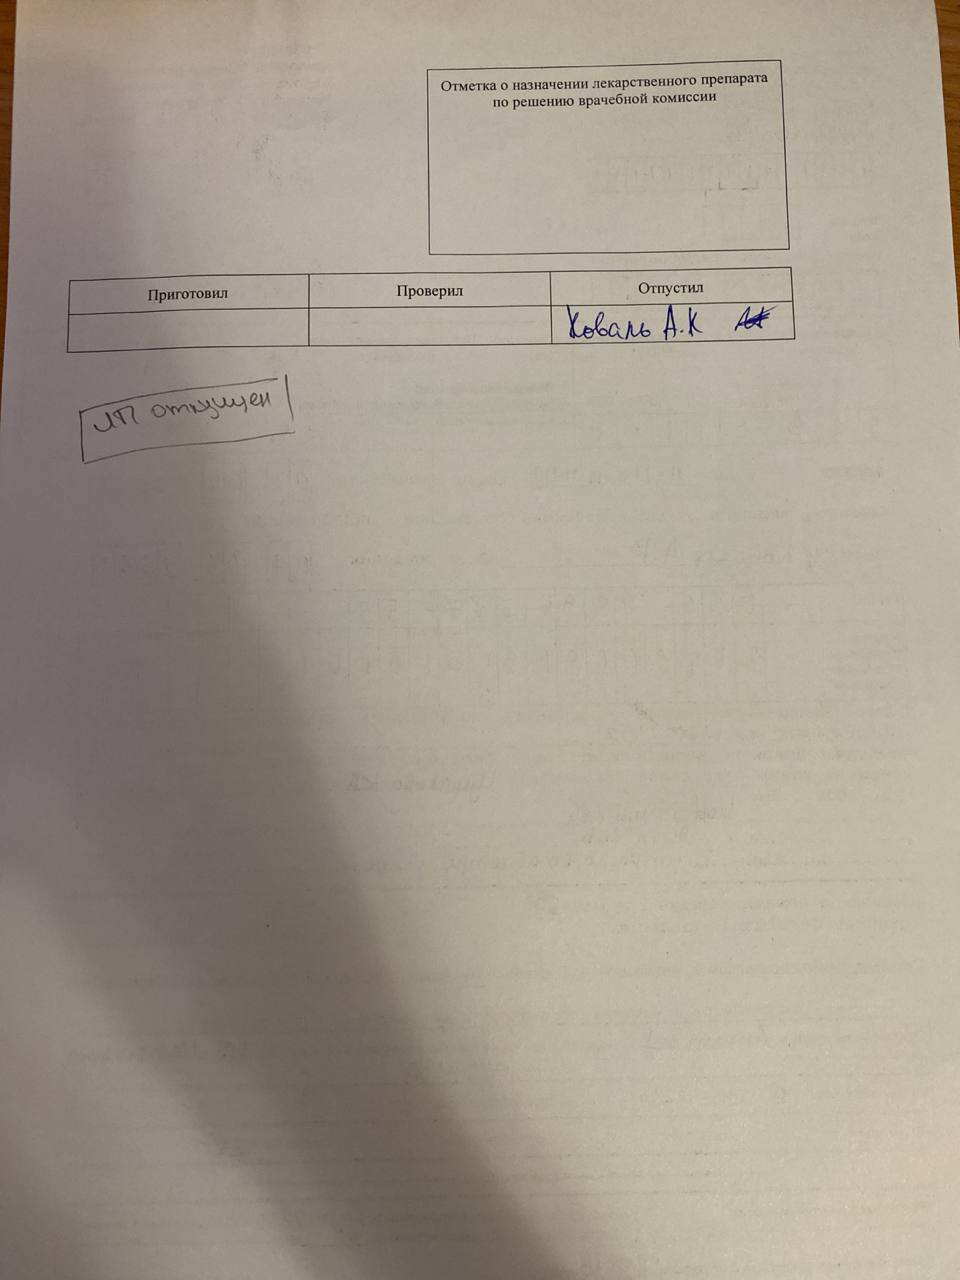 Отметка о назначении лекарственного препарата
по решению врачебной комиссии
Приготовил Проверил Отпустил
Коваль А.К
ЛП отпущен